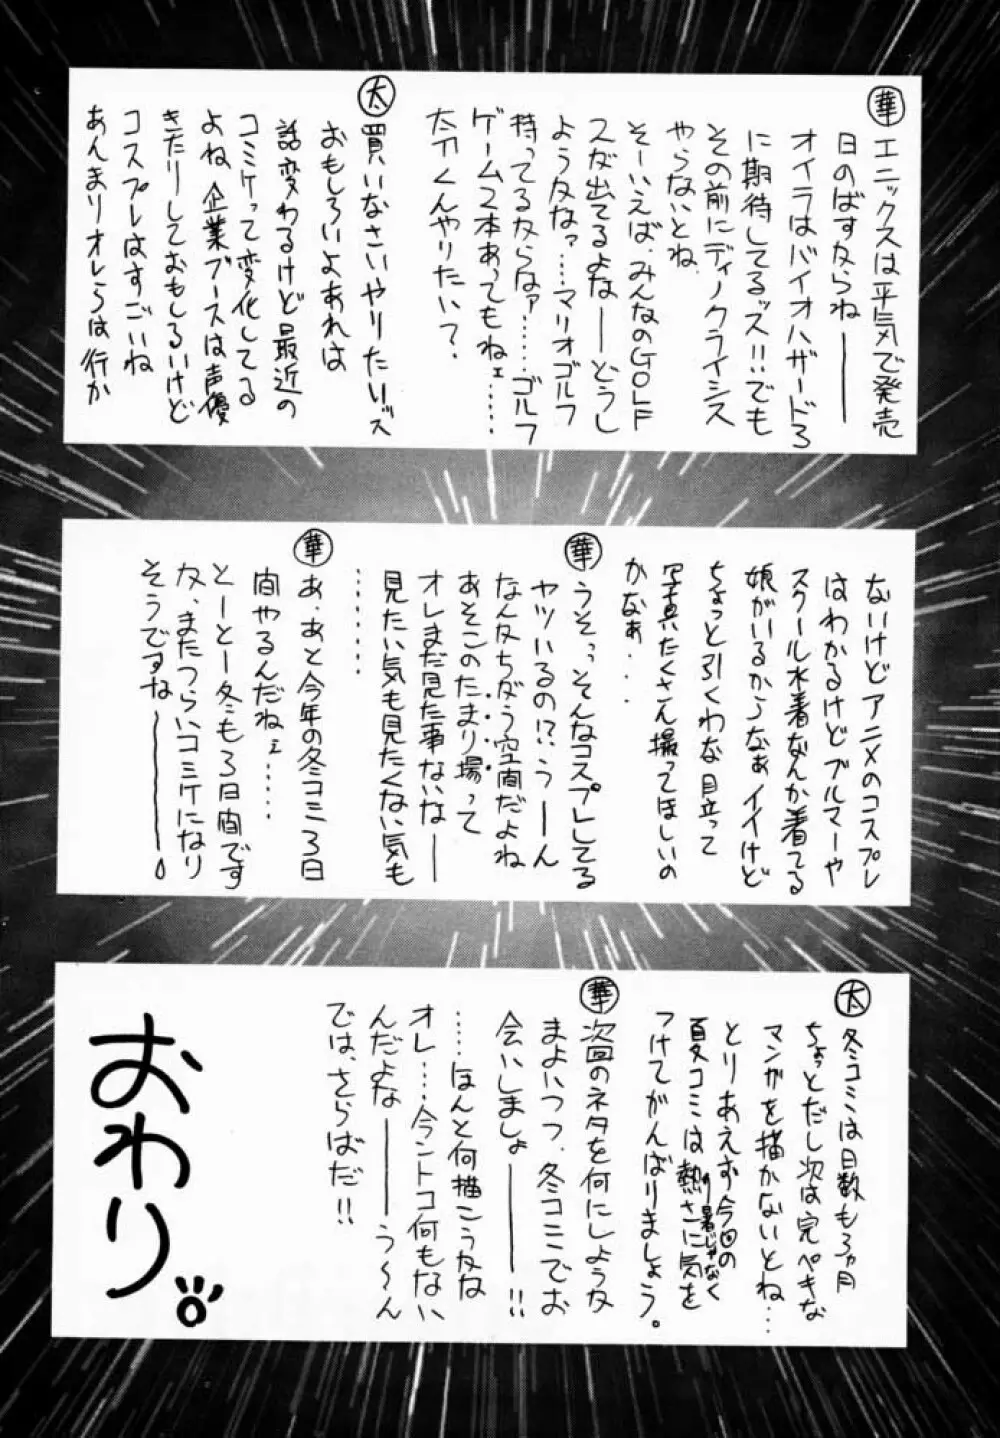 華 エニックスは平気で発売
日のばすならね――
オイラはバイオハザード3
に期待してるッス!!でも
その前にディノクライシス
やらないとね.
そーいえば、みんなのGOLF
スゲ出てるよな――どうし
ような……マリオゴルフ
持ってるならなァ……ゴルフ
ゲーム2本あってもねェ……
太刀くんやりたい?.
太 買いなさいやりたいッズ
おもしろいよあれは
話変わるけど最近の
コミケって変化してる
よね、企業ブースは声優
きたりしておもしろいけど
コスプレはすごいね
あんまりオレらは行か
ないけどアニメのコスプレ
はわかるけどブルマーや
スクール水着なんか着てる
娘がいるからなぁイイけど
ちょっと引くわな目立って
写真たくさん撮ってほしいの
かなぁ...
華 うそっっそんなコスプレしてる
ヤツいるの!?.うーん
なんかちがう空間だよね
あそこのたまり場って
オレまだ見た事ないな――
見たい気も見たくない気も
………
華 あ、あと今年の冬コミ3日
間やるんだねェ……
とーとー冬も3日間です
な、またつらいコミケになり
そうですな――。
太 冬コミは日数も3ヵ月
ちょっとだし次は完ペキな
マンガを描かないとね…
とりあえず今回の
夏コミは熱さに気を
暑じゃなく
つけてがんばりましょう。
華 次回のネタを何にしような
まよいつつ、冬コミでお
会いしましょ――!!
……ほんと何描こうかな
オレ…今ントコ何もない
んだよな――う〜ん
では、さらばだ!!
おわり。